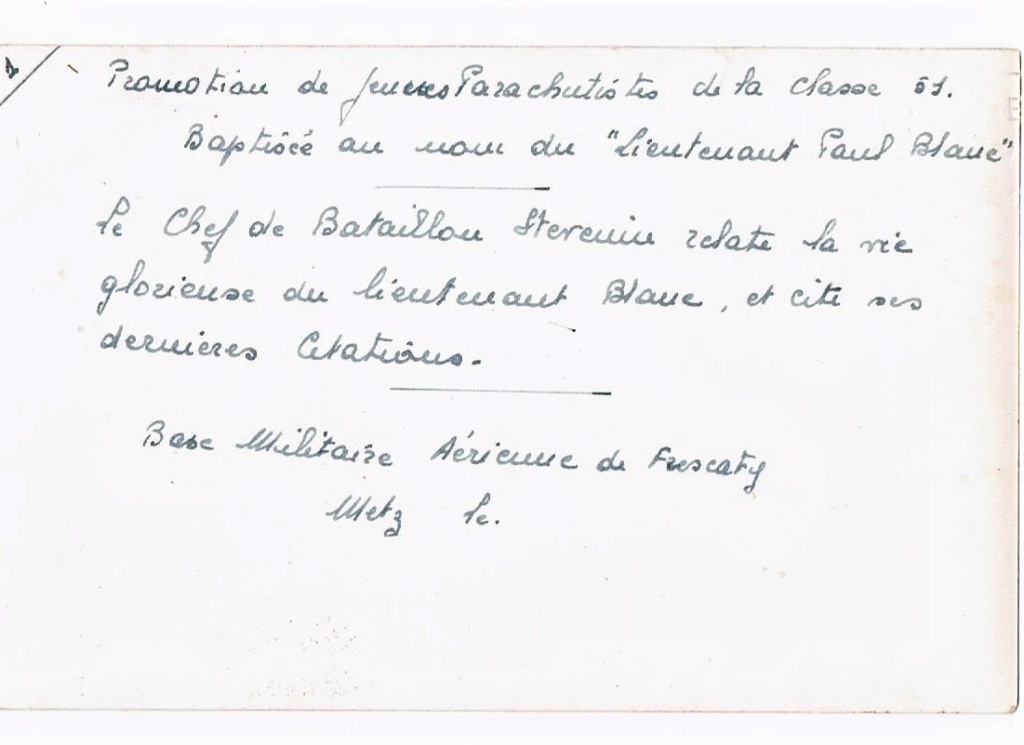 1
Promotion de jeunes Parachutistes de la classe 51.
Baptisée au nom du "Lieutenant Paul Blanc"
le Chef de Bataillon Stevenin relate la vie
glorieuse du lieutenant Blanc, et cite ses
dernières Citations.
Base Militaire Aérienne de Frescaty
Metz le.